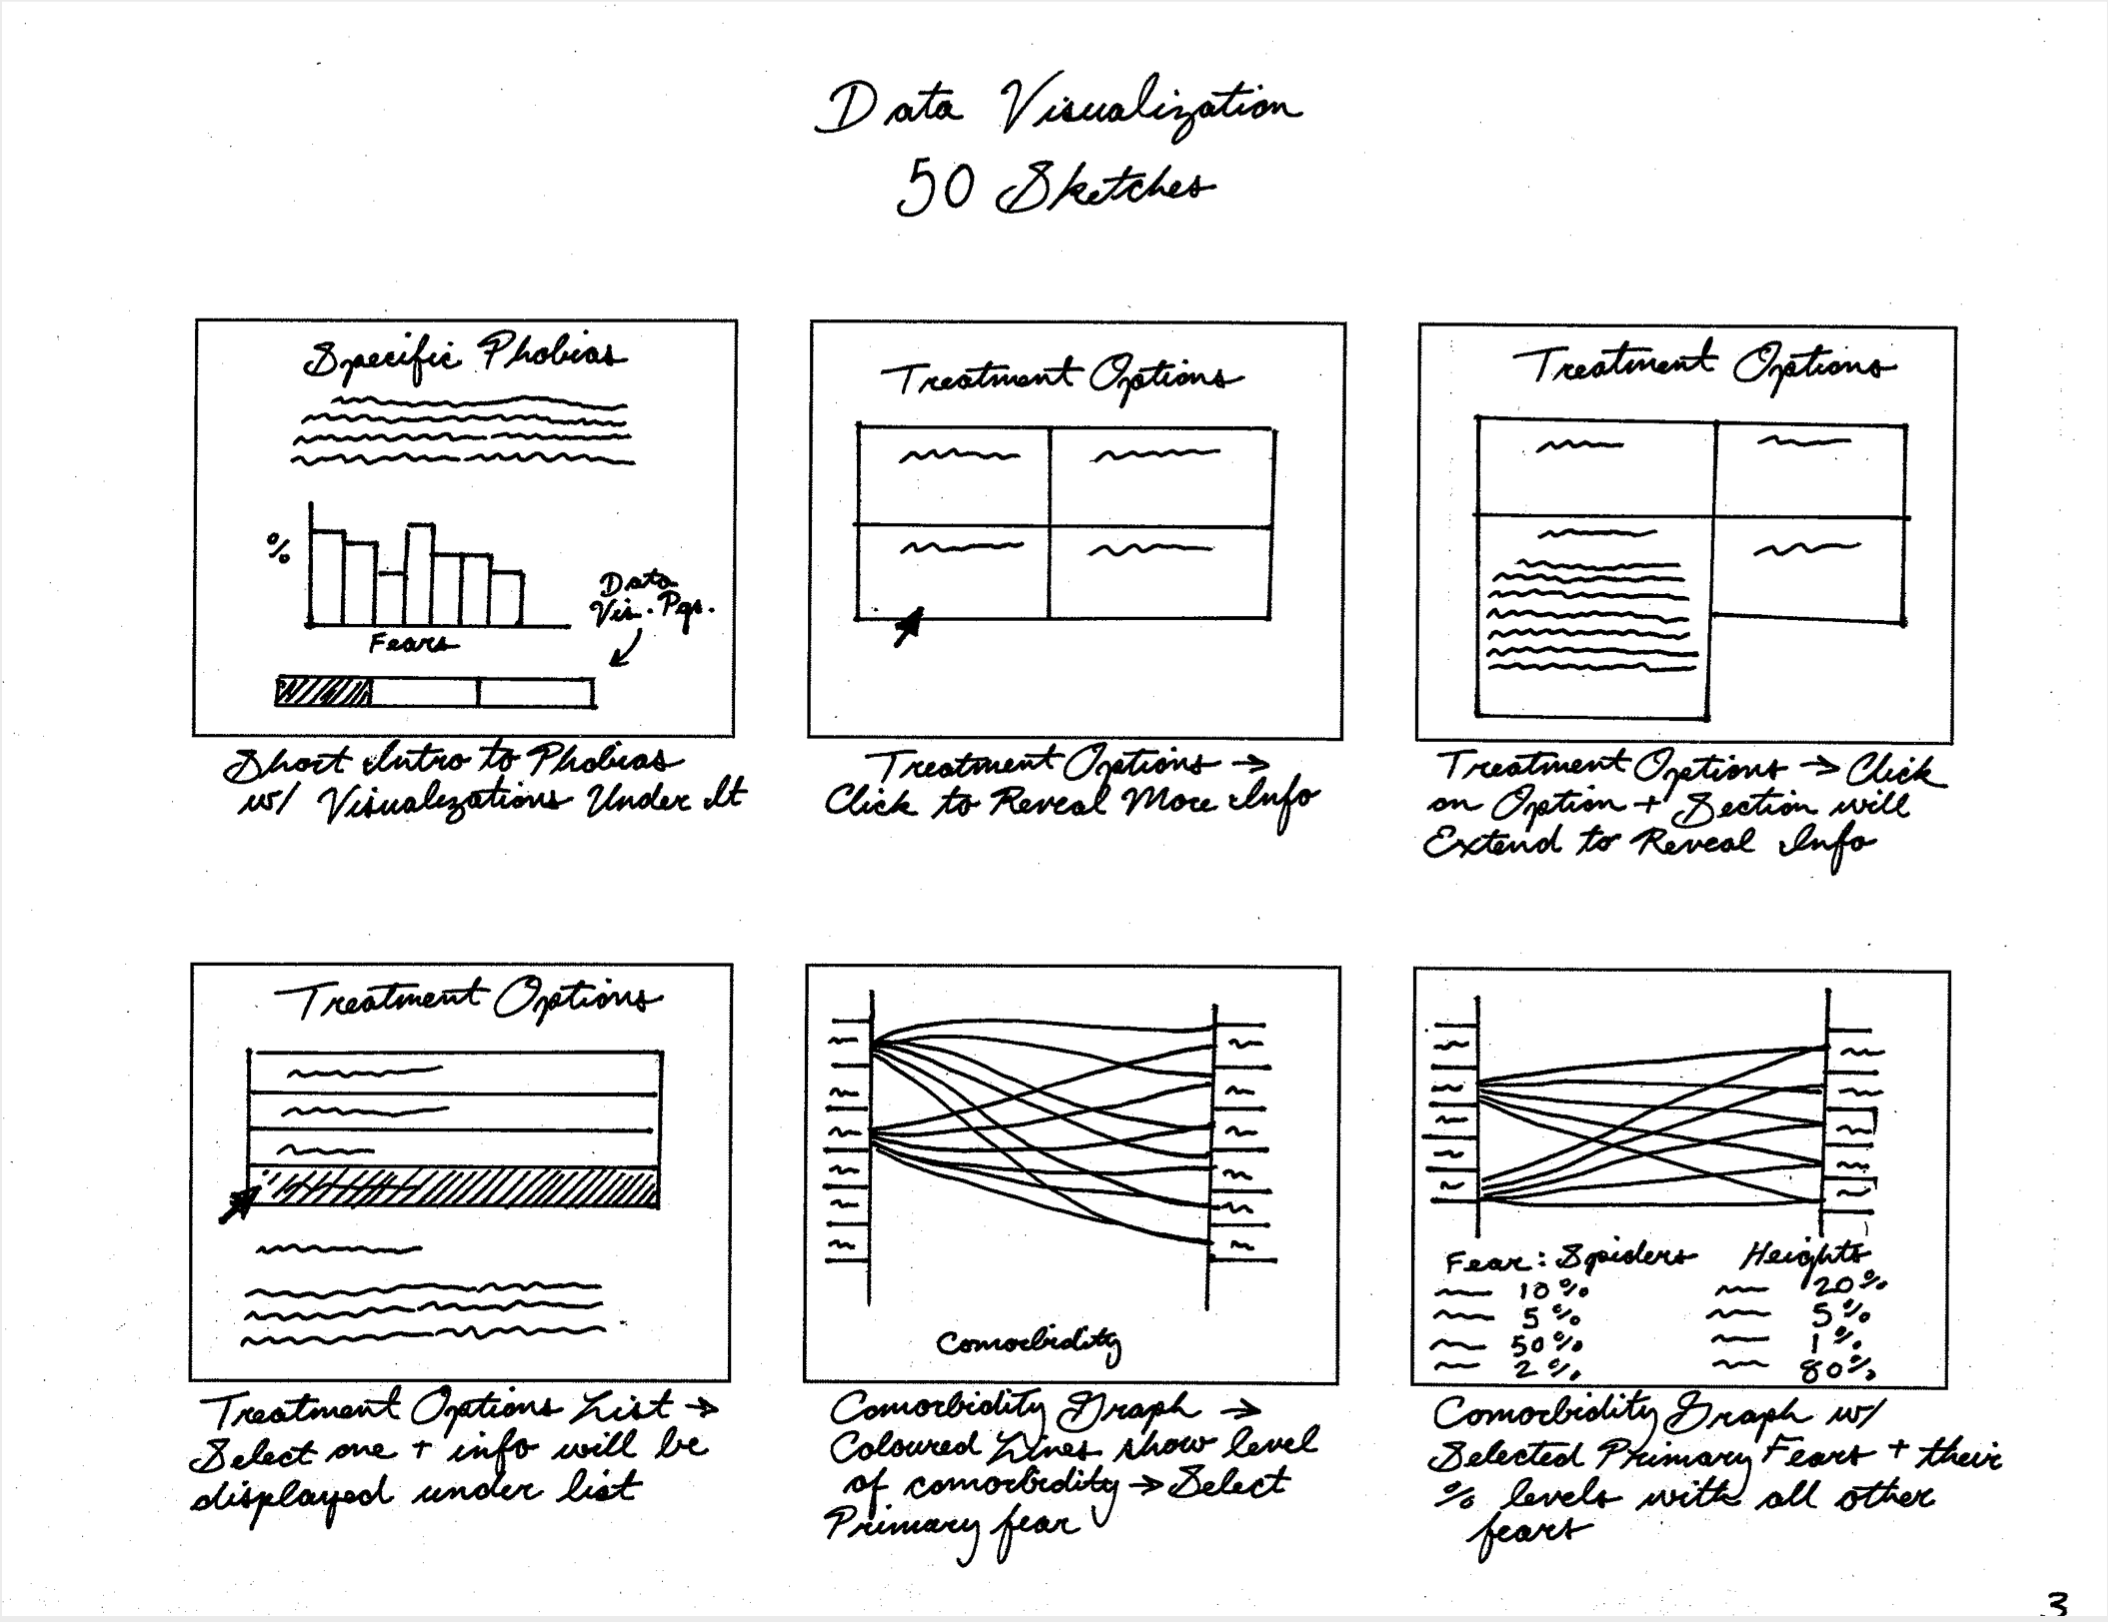 Data Visualization
50 Sketches
Specific Phobias
%
Fears
Data
Vis. Pgs.
Short Intro to Phobias
w/ Visualizations Under It
Treatment Options
Treatment Options →
Click to Reveal More Info
Treatment Options
Treatment Options → Click
on Option + Section will
Extend to Reveal Info
Treatment Options
Treatment Options List →
Select one + info will be
displayed under list
Comorbidity
Comorbidity Graph →
Coloured Lines show level
of comorbidity → Select
Primary fear
Fear: Spiders Heights
10% 20%
5% 5%
50% 1%
2% 80%
Comorbidity Graph w/
Selected Primary Fears + their
% levels with all other
fears
3